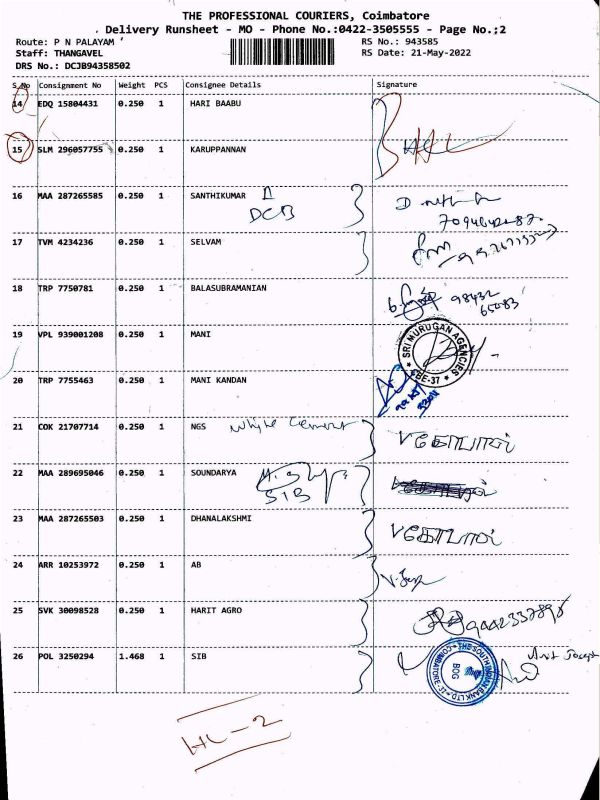 THE PROFESSIONAL COURIERS, Coimbatore
Delivery Runsheet - MO - Phone No.:0422-3505555 - Page No.;2
Route: P N PALAYAM
RS No.: 943585
Staff: THANGAVEL
RS Date: 21-May-2022
DRS No.: DCJB94358502
S.No Consignment No Weight PCS Consignee Details Signature
14 EDQ 15804431 0.250 1 HARI BAABU
15 SLM 296057755 0.250 1 KARUPPANNAN
16 MAA 287265585 0.250 1 SANTHIKUMAR
DCB
17 TVM 4234236 0.250 1 SELVAM
18 TRP 7750781 0.250 1 BALASUBRAMANIAN
98432
65083
19 VPL 939001208 0.250 1 MANI
SRI MURUGAN AGENCIES
CBE-37
20 TRP 7755463 0.250 1 MANI KANDAN
21 COK 21707714 0.250 1 NGS White Cement V கோபால்
22 MAA 289695046 0.250 1 SOUNDARYA
SIB
23 MAA 287265503 0.250 1 DHANALAKSHMI V கோபால்
24 ARR 10253972 0.250 1 AB
25 SVK 30098528 0.250 1 HARIT AGRO
26 POL 3250294 1.468 1 SIB
THE SOUTH INDIAN BANK LTD
COIMBATORE-37
BOG
HL-2